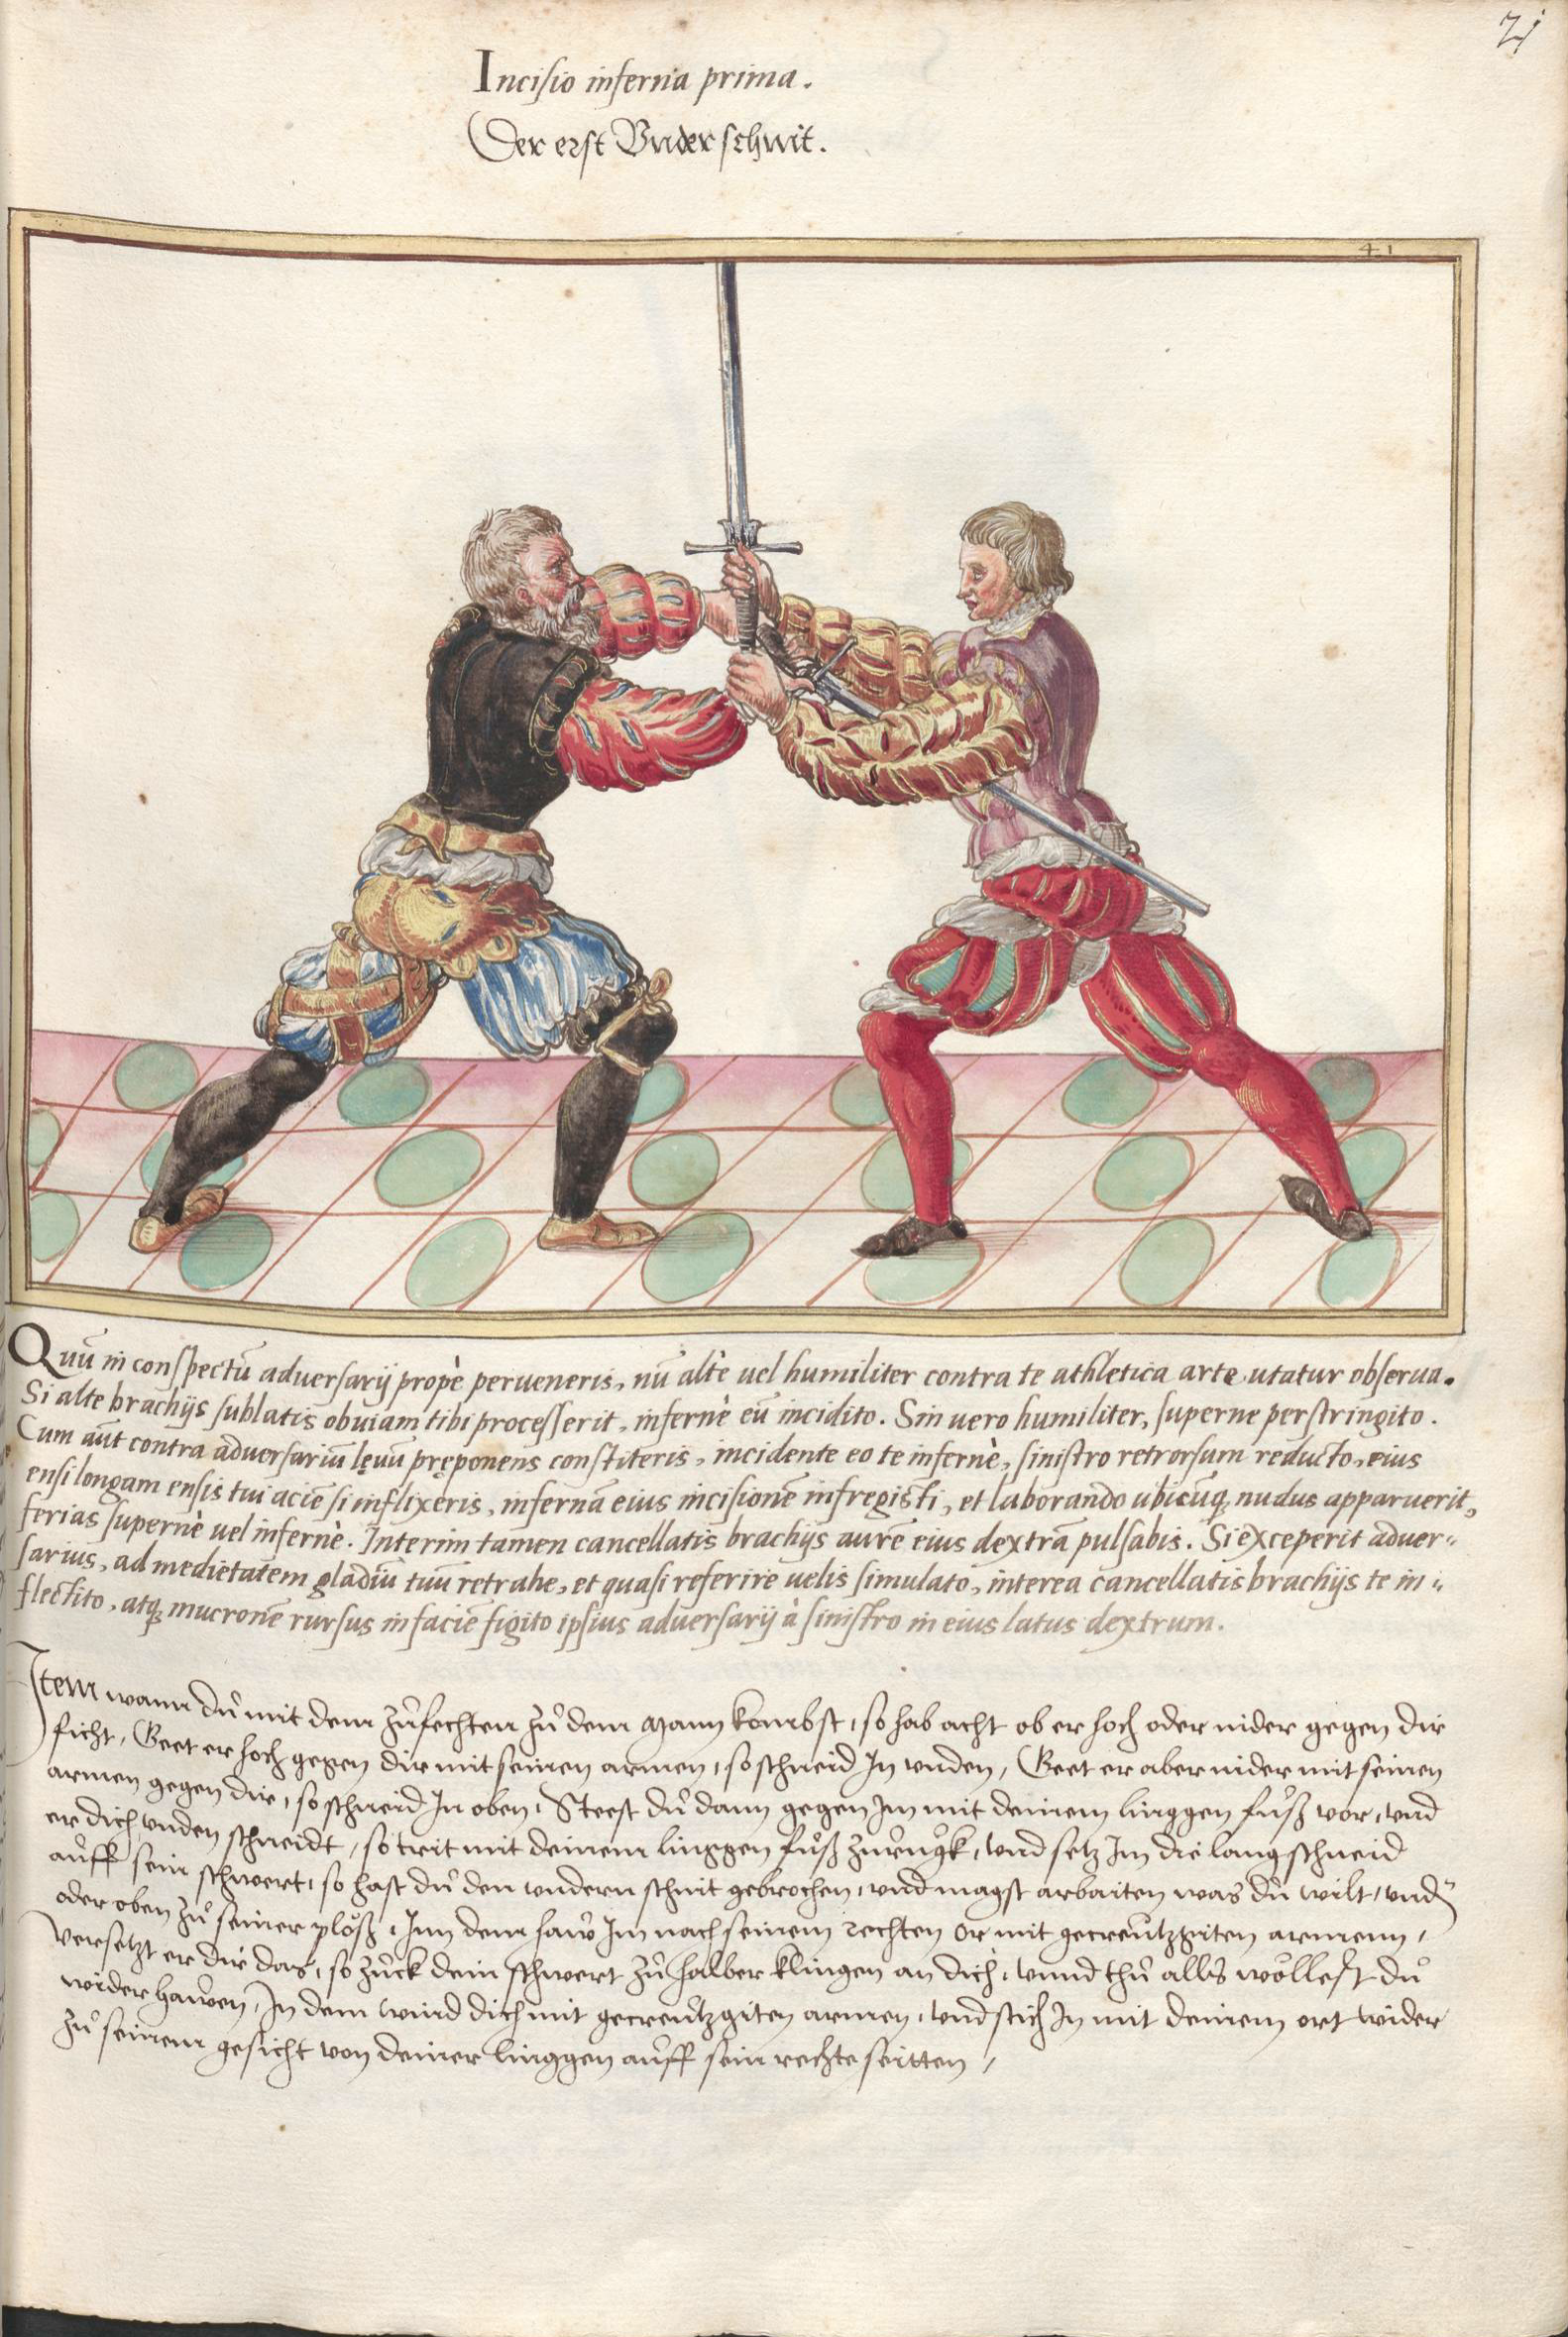 21
Incisio inferna prima.
Der erst Vnderschnit.
41
Quū in conspectū adversarij propè perveneris, nū altè vel humiliter contra te athletica arte utatur observa.
Si alte brachijs sublatis obviam tibi processerit, infernè eū incidito. Sin vero humiliter, superne perstringito.
Cum aūt contra adversariū lęvū pręponens constiteris, incidente eo te infernè, sinistro retrorsum reducto, eius
ensi longam ensis tui aciē si inflixeris, infernā eius incisionē infregisti, et laborando ubicūq; nudus apparuerit,
ferias supernè vel infernè. Interim tamen cancellatis brachijs aurē eius dextrā pulsabis. Si exceperit adver-
sarius, ad medietatem gladiū tuū retrahe, et quasi referire velis simulato, interea cancellatis brachijs te in-
flectito, atq; mucronē rursus in faciē figito ipsius adversarij à sinistro in eius latus dextrum.
Item wann dů mit dem zůfechten zů dem Mann kombst, so hab acht ob er hoch oder nider gegen dir
ficht, Geet er hoch gegen dir mit seinen armen, so schneid In vnden, Geet er aber nider mit seinen
armen gegen dir, so schneid In oben, Steest dů dann gegen Im mit deinem linggen fůß vor, vnd
er dich vnden schneidt, so trit mit deinem linggen fůß zůrugk, vnd setz Im die lang schneid
aůff sein schwert, so hast dů den vndern schnit gebrochen, vnd magst arbaiten was dů wilt, vnden
oder oben zů seiner plöß, Inn dem haw Im nach seinem rechten or mit gecreützgiten armenn,
Versetzt er dir das, so zůck dein schwert zů halber klingen an dich, vnnd thů alls wöllest dů
wider hawen, In dem wind dich mit gecreützgiten armen, vnd stich In mit deinem ort wider
zů seinem gesicht von deiner linggen aůff sein rechte seitten,